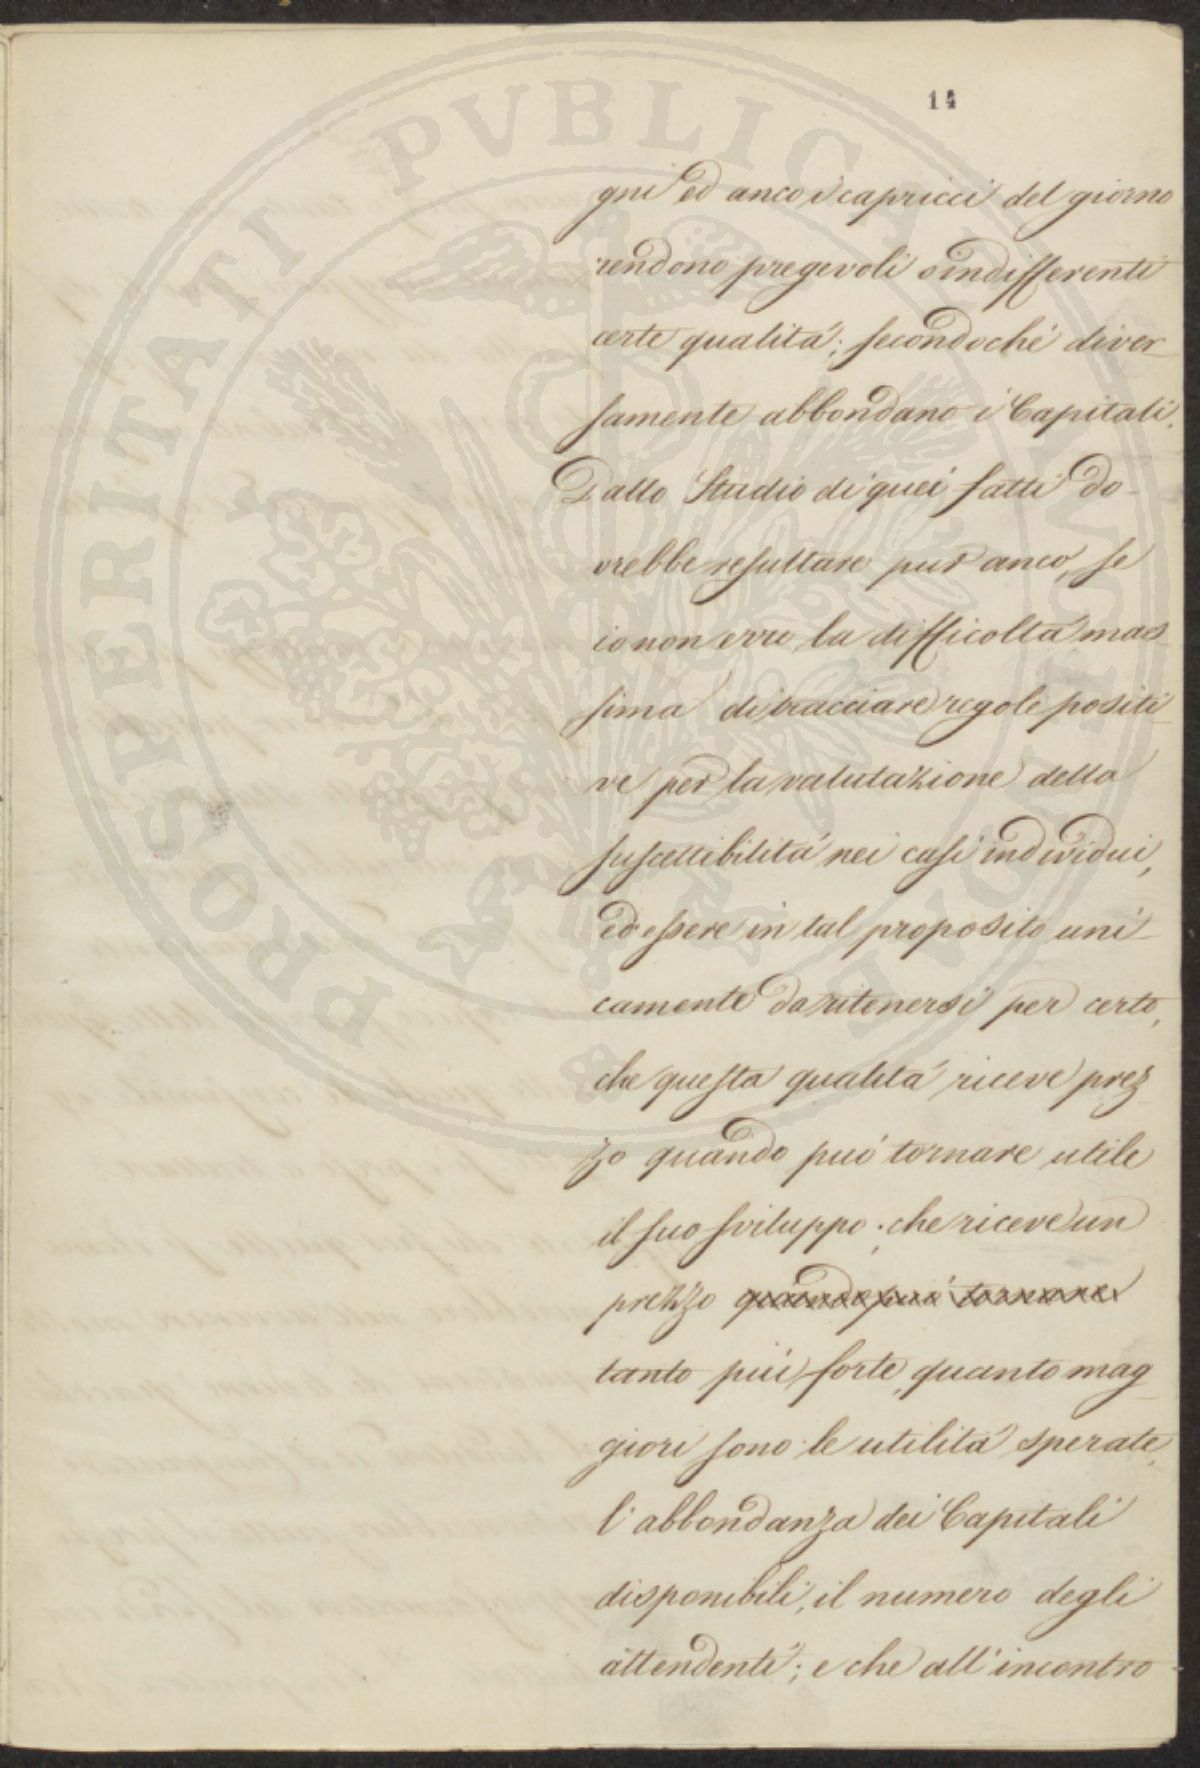 14
gni ed anco i capricci del giorno
rendono pregevoli o indifferenti
certe qualitá; secondoché diver-
samente abbondano i Capitali.
Dallo Studio di quei fatti do-
vrebbe resultare pur anco, se
io non erro, la difficoltá mas-
sima di tracciare regole positi-
ve per la valutazione della
suscettibilitá nei casi individui,
ed essere in tal proposito uni-
camente da ritenersi per certo,
che questa qualitá riceve prez-
zo quando puó tornare utile
il suo sviluppo; che riceve un
prezzo quando puó tornare
tanto piú forte, quanto mag-
giori sono le utilitá sperate,
l'abbondanza dei Capitali
disponibili, il numero degli
attendenti; e che all'incontro
PROSPERITATI PVBLICAE